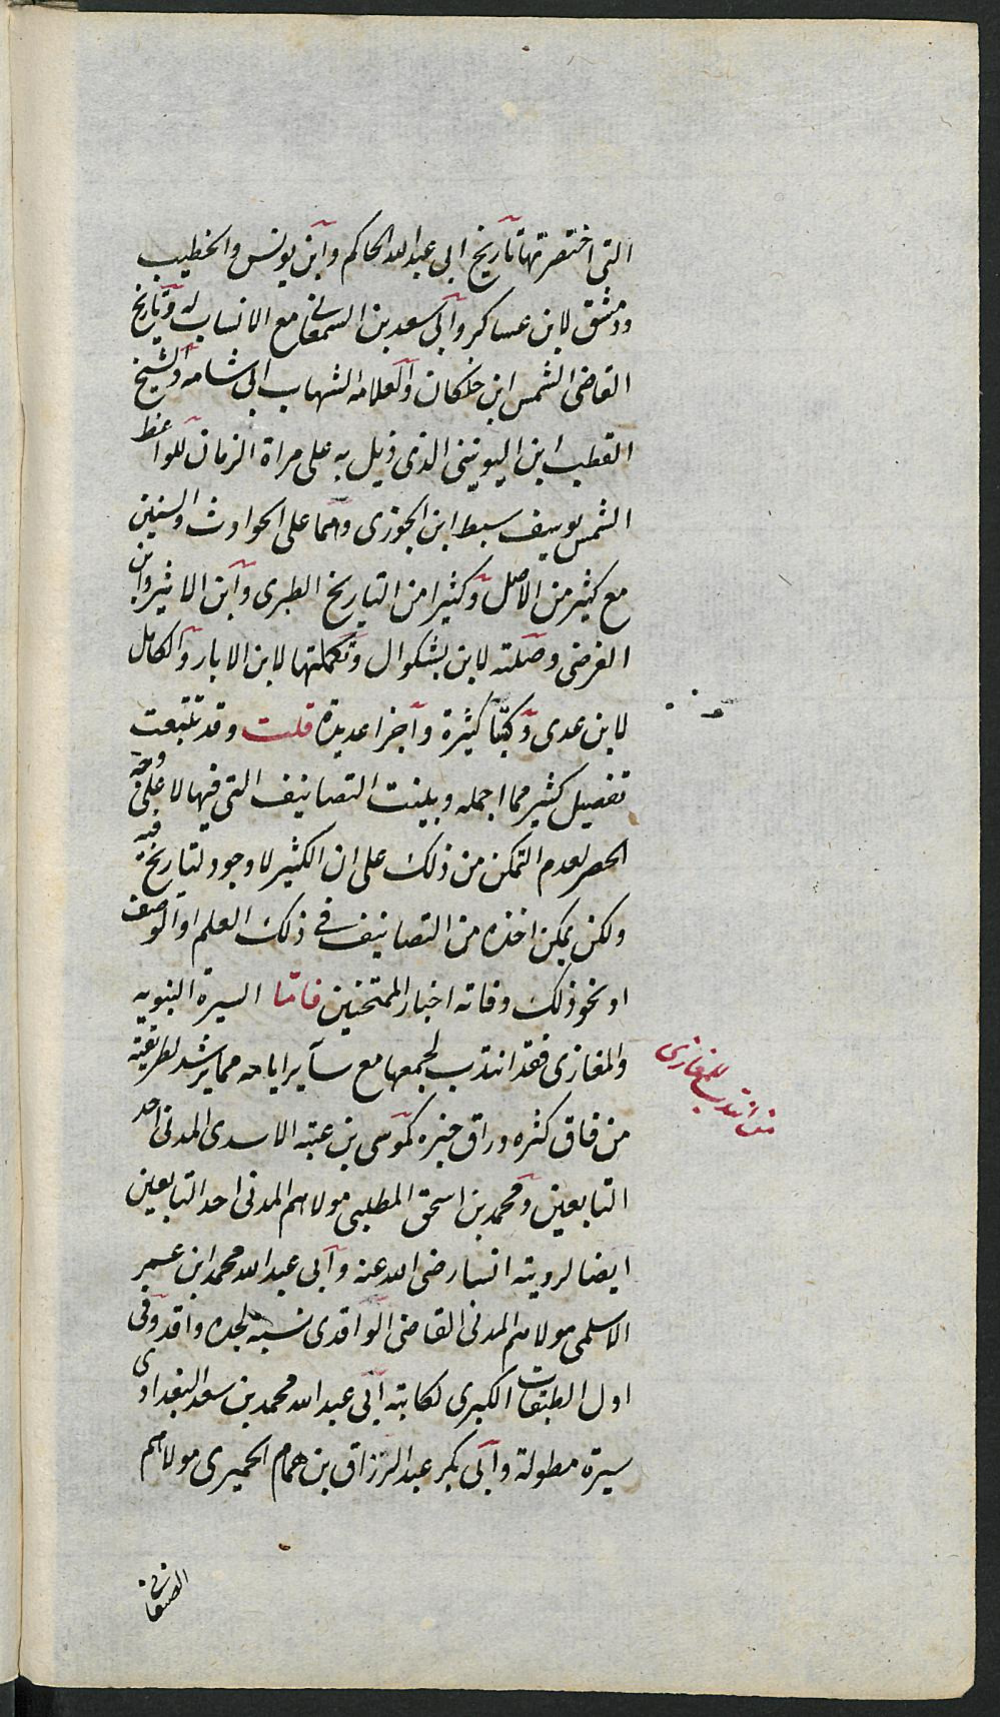 التى اختصرتها تاريخ ابى عبد الله الحاكم وابن يونس والخطيب
ودمشق لابن عساكر وآبى سعد بن السمعانى مع الانساب له وتاريخ
القاضى الشمس ابن خلكان والعلامه الشهاب ابى شامه والشيخ
القطب ابن اليونينى الذى ذيل به على مراة الزمان للواعظ
الشمس يوسف سبط ابن الجوزى وهما على الحوادث والسنين
مع كثير من الاصل وكثيرا من التاريخ الطبرى وابن الاثير وابن
الفرضى وصلته لابن بشكوال وتكملتها لابن الابار والكامل
لابن عدى وكتبا كثيرة واجزا عديدة قلت وقد تتبعت
تفصيل كثير مما اجمله وبينت التصانيف التى فيها لا على وجه
الحصر لعدم التمكن من ذلك على ان الكثير لا وجود لتاريخ فيه
ولكن يمكن اخذه من التصانيف فى ذلك العلم او الوصف
او نحو ذلك وفاته اخبار الممتحنين فامّا السيرة النبويه
والمغازى فقد انتدب لجمعها مع سآير اياحه مما يرشد لطريقته
من فاق كثره وراق خبره كموسى بن عقبه الاسدى المدنى احد
التابعين ومحمد بن اسحق المطلبى مولاهم المدنى احد التابعين
ايضا لرويته انسا رضى الله عنه وآبى عبد الله محمد ابن عمر
الاسلمى مولاهم المدنى القاضى الواقدى نسبه لجده واقد وفى
اول الطبقات الكبرى لكاتبه آبى عبد الله محمد بن سعد البغدادى
سيرة مطولة وآبى بكر عبد الرزاق بن همام الحميرى مولاهم
الصنعانى
من انتدب للمغازى